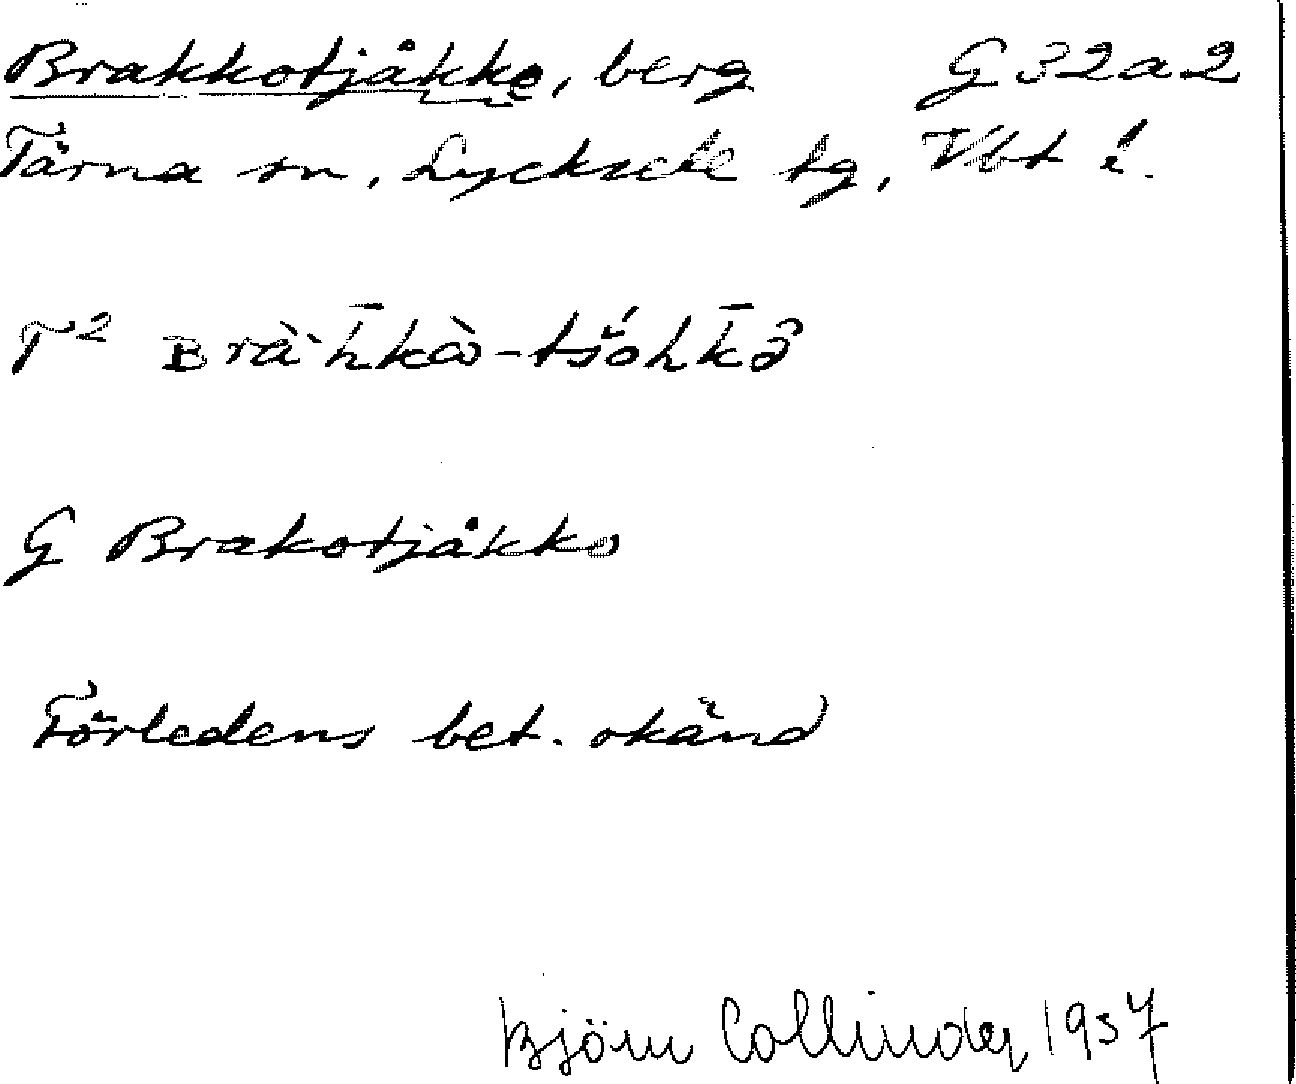 Brakkotjåkke, berg G 32 a 2
Tärna sn, Lycksele tg, Vbt l.
T² ʙrὰˈh̄kὼ-tšóhk̄ə̑
G Brakotjåkko
Förledens bet. okänd
Björn Collinder 1957